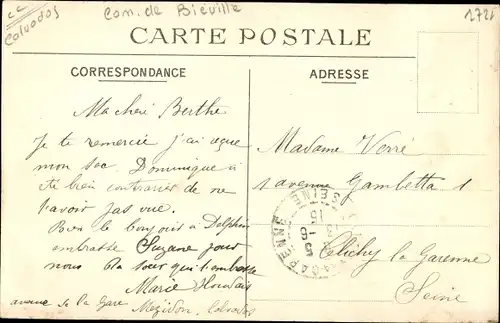 Calvados
Com. de Biéville
1721
CARTE POSTALE
CORRESPONDANCE
ADRESSE
Ma cheri Berthe
Je te remercie j'ai reçue
mon sac. Dominique a
été bien contrarié de ne
t'avoir pas vue.
Bon le bonjour à Delphin
embrasse Suzane pour
nous ta sœur qui t'embrasse
Marie
avenue de la Gare Mezidon. Calvados
Madame Verré
1 avenue Gambetta 1
Clichy la Garenne
Seine
SEINE